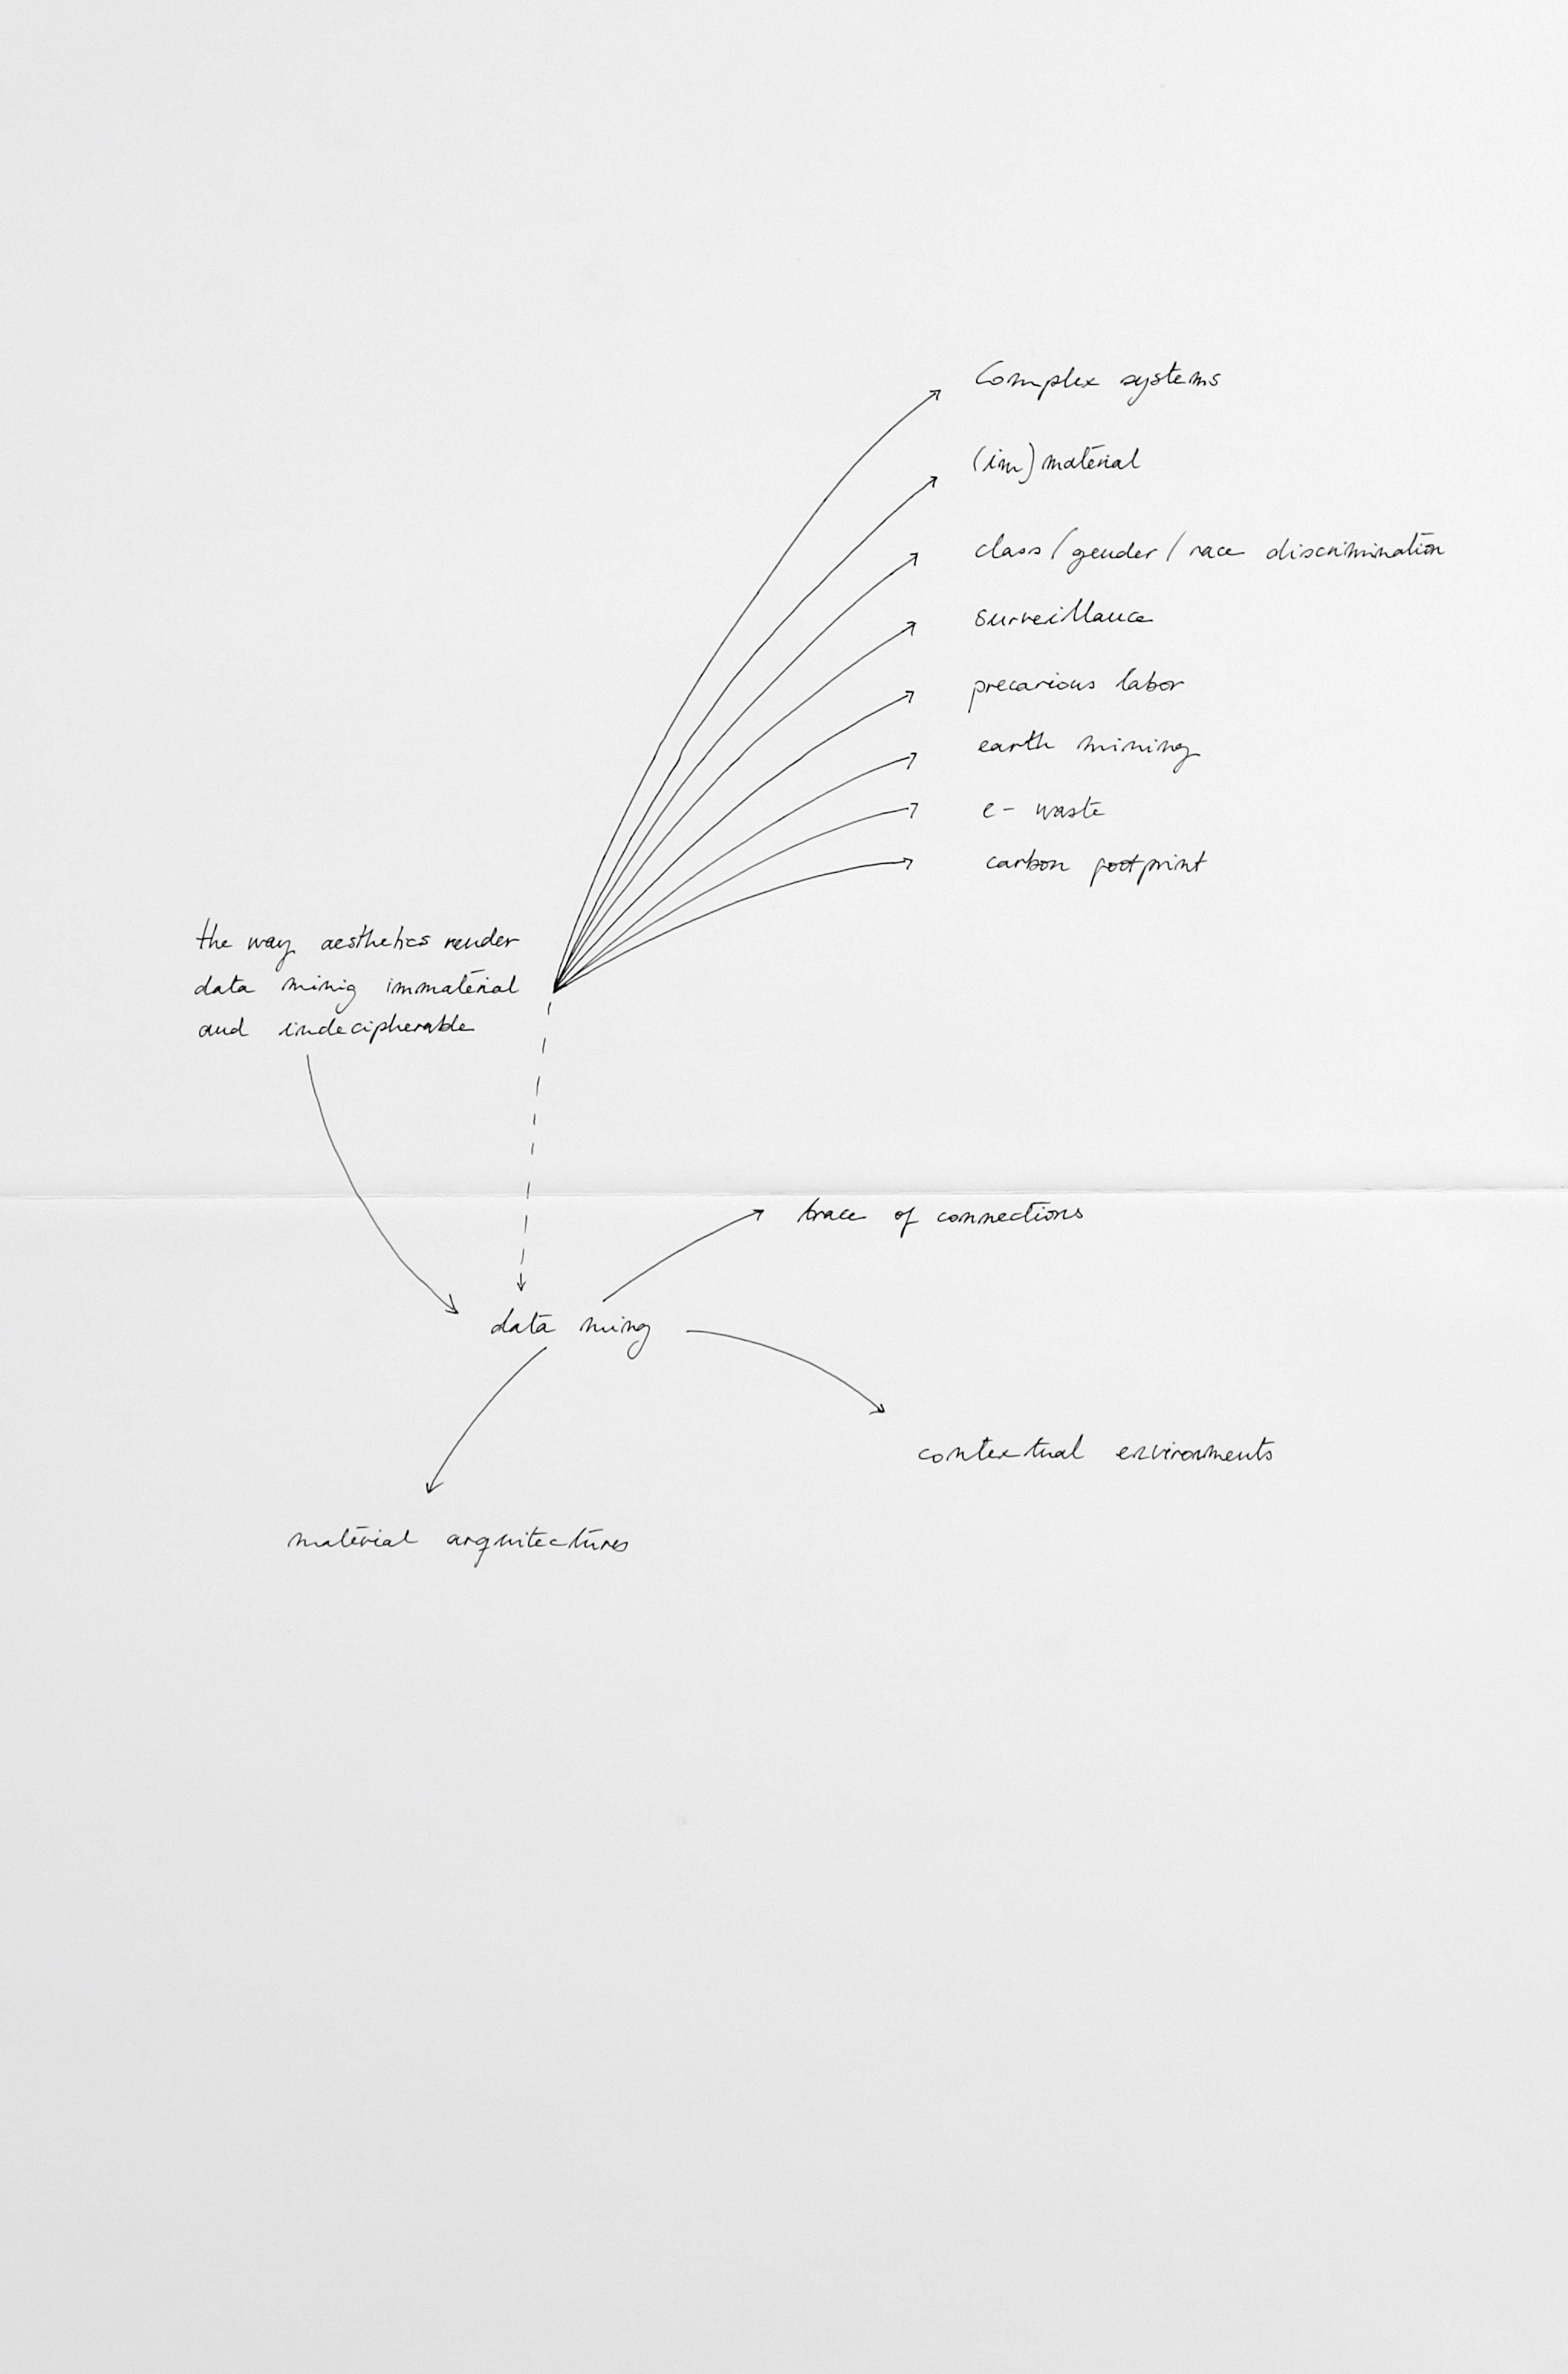 Complex systems
(im)material
class/gender/race discrimination
surveillance
precarious labor
earth mining
e-waste
carbon footprint
the way aesthetics render
data minig immaterial
and indecipherable
trace of connections
data ming
contextual environments
material arquitectures